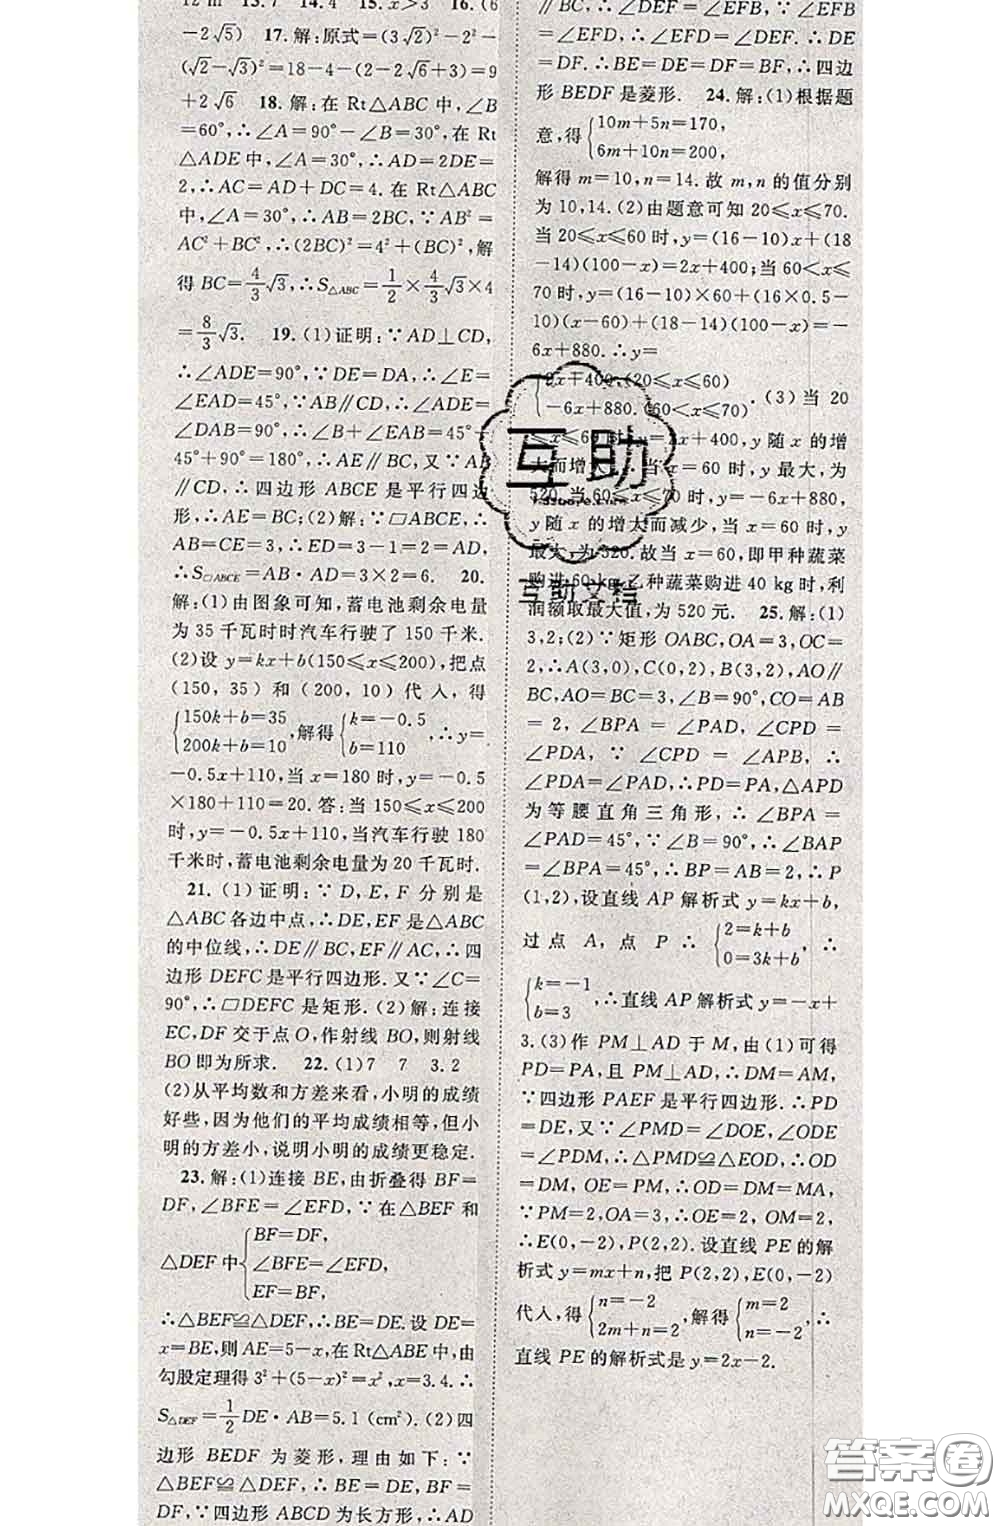 12 m　13. 7　14. 4　15. x>3　16. (6
-2√5)　17. 解:原式=(3√2)²-2²-
(√2-√3)²=18-4-(2-2√6+3)=9
+2√6　18. 解:在 Rt△ABC 中,∠B
=60°,∴∠A=90°-∠B=30°,在 Rt
△ADE 中,∠A=30°,∴AD=2DE=
2,∴AC=AD+DC=4. 在 Rt△ABC
中,∠A=30°,∴AB=2BC,∵AB²=
AC²+BC²,∴(2BC)²=4²+(BC)²,解
得 BC=4/3√3,∴S△ABC=1/2×4/3√3×4
=8/3√3.　19. (1)证明:∵AD⊥CD,
∴∠ADE=90°,∵DE=DA,∴∠E=
∠EAD=45°,∵AB∥CD,∴∠ADE=
∠DAB=90°,∴∠B+∠EAB=45°+
45°+90°=180°,∴AE∥BC,又∵AB∥
CD,∴四边形 ABCE 是平行四边
形,∴AE=BC;(2)解:∵▱ABCE,∴
AB=CE=3,∴ED=3-1=2=AD,
∴S▱ABCE=AB·AD=3×2=6.　20.
解:(1)由图象可知,蓄电池剩余电量
为 35 千瓦时时汽车行驶了 150 千米.
(2)设 y=kx+b(150≤x≤200),把点
(150, 35) 和 (200, 10) 代入, 得
{150k+b=35
200k+b=10,解得{k=-0.5
b=110,∴y=
-0.5x+110,当 x=180 时,y=-0.5
×180+110=20. 答:当 150≤x≤200
时,y=-0.5x+110,当汽车行驶 180
千米时,蓄电池剩余电量为 20 千瓦时.
21. (1) 证明:∵D, E, F 分别是
△ABC 各边中点,∴DE,EF 是△ABC
的中位线,∴DE∥BC,EF∥AC,∴四
边形 DEFC 是平行四边形. 又∵∠C=
90°,∴▱DEFC 是矩形. (2)解:连接
EC,DF 交于点 O,作射线 BO,则射线
BO 即为所求.　22. (1)7　7　3.2
(2)从平均数和方差来看,小明的成绩
好些,因为他们的平均成绩相等,但小
明的方差小,说明小明的成绩更稳定.
23. 解:(1)连接 BE,由折叠得 BF=
DF,∠BFE=∠EFD,∵在△BEF 和
△DEF 中{BF=DF,
∠BFE=∠EFD,
EF=BF,
∴△BEF≌△DEF,∴BE=DE. 设 DE=
x=BE,则 AE=5-x,在 Rt△ABE 中,由
勾股定理得 3²+(5-x)²=x²,x=3.4.∴
S△DEF=1/2DE·AB=5.1 (cm²). (2)四
边形 BEDF 为菱形,理由如下:∵
△BEF≌△DEF,∴BE=DE,BF=
DF,∵四边形 ABCD 为长方形,∴AD
∥BC,∴∠DEF=∠EFB,∵∠EFB
=∠EFD,∴∠EFD=∠DEF.∴DE
=DF.∴BE=DE=DF=BF,∴四边
形 BEDF 是菱形.　24. 解:(1)根据题
意,得{10m+5n=170,
6m+10n=200,
解得 m=10,n=14. 故 m,n 的值分别
为 10,14. (2)由题意可知 20≤x≤70.
当 20≤x≤60 时,y=(16-10)x+(18
-14)(100-x)=2x+400;当 60<x≤
70 时,y=(16-10)×60+(16×0.5-
10)(x-60)+(18-14)(100-x)=-
6x+880.∴y=
{2x+400,(20≤x≤60)
-6x+880.(60<x≤70). (3) 当 20
≤x≤60 时,y=2x+400,y 随 x 的增
大而增大,当 x=60 时,y 最大,为
520. 当 60≤x≤70 时,y=-6x+880,
y 随 x 的增大而减少,当 x=60 时,y
最大,为 520. 故当 x=60,即甲种蔬菜
购进 60 kg,乙种蔬菜购进 40 kg 时,利
润额取最大值,为 520 元.　25. 解:(1)
3,2;(2)∵矩形 OABC,OA=3,OC=
2,∴A(3,0),C(0,2),B(3,2),AO∥
BC,AO=BC=3,∠B=90°,CO=AB
=2,∠BPA=∠PAD,∠CPD=
∠PDA,∵∠CPD=∠APB,∴
∠PDA=∠PAD,∴PD=PA,△APD
为等腰直角三角形,∴∠BPA=
∠PAD=45°,∵∠B=90°,∴∠BAP
=∠BPA=45°,∴BP=BA=2,∴P
(1,2),设直线 AP 解析式 y=kx+b,
过点 A,点 P∴{2=k+b
0=3k+b,∴
{k=-1
b=3,∴直线 AP 解析式 y=-x+
3. (3)作 PM⊥AD 于 M,由(1)可得
PD=PA,且 PM⊥AD,∴DM=AM,
∵四边形 PAEF 是平行四边形.∴PD
=DE,又∵∠PMD=∠DOE,∠ODE
=∠PDM,∴△PMD≌△EOD,∴OD
=DM,OE=PM,∴OD=DM=MA,
∵PM=2,OA=3,∴OE=2,OM=2,
∴E(0,-2),P(2,2).设直线 PE 的解
析式 y=mx+n,把 P(2,2),E(0,-2)
代入,得{n=-2
2m+n=2,解得{m=2
n=-2,∴
直线 PE 的解析式是 y=2x-2.
互助
互助文档
答案圈
MXQE.COM